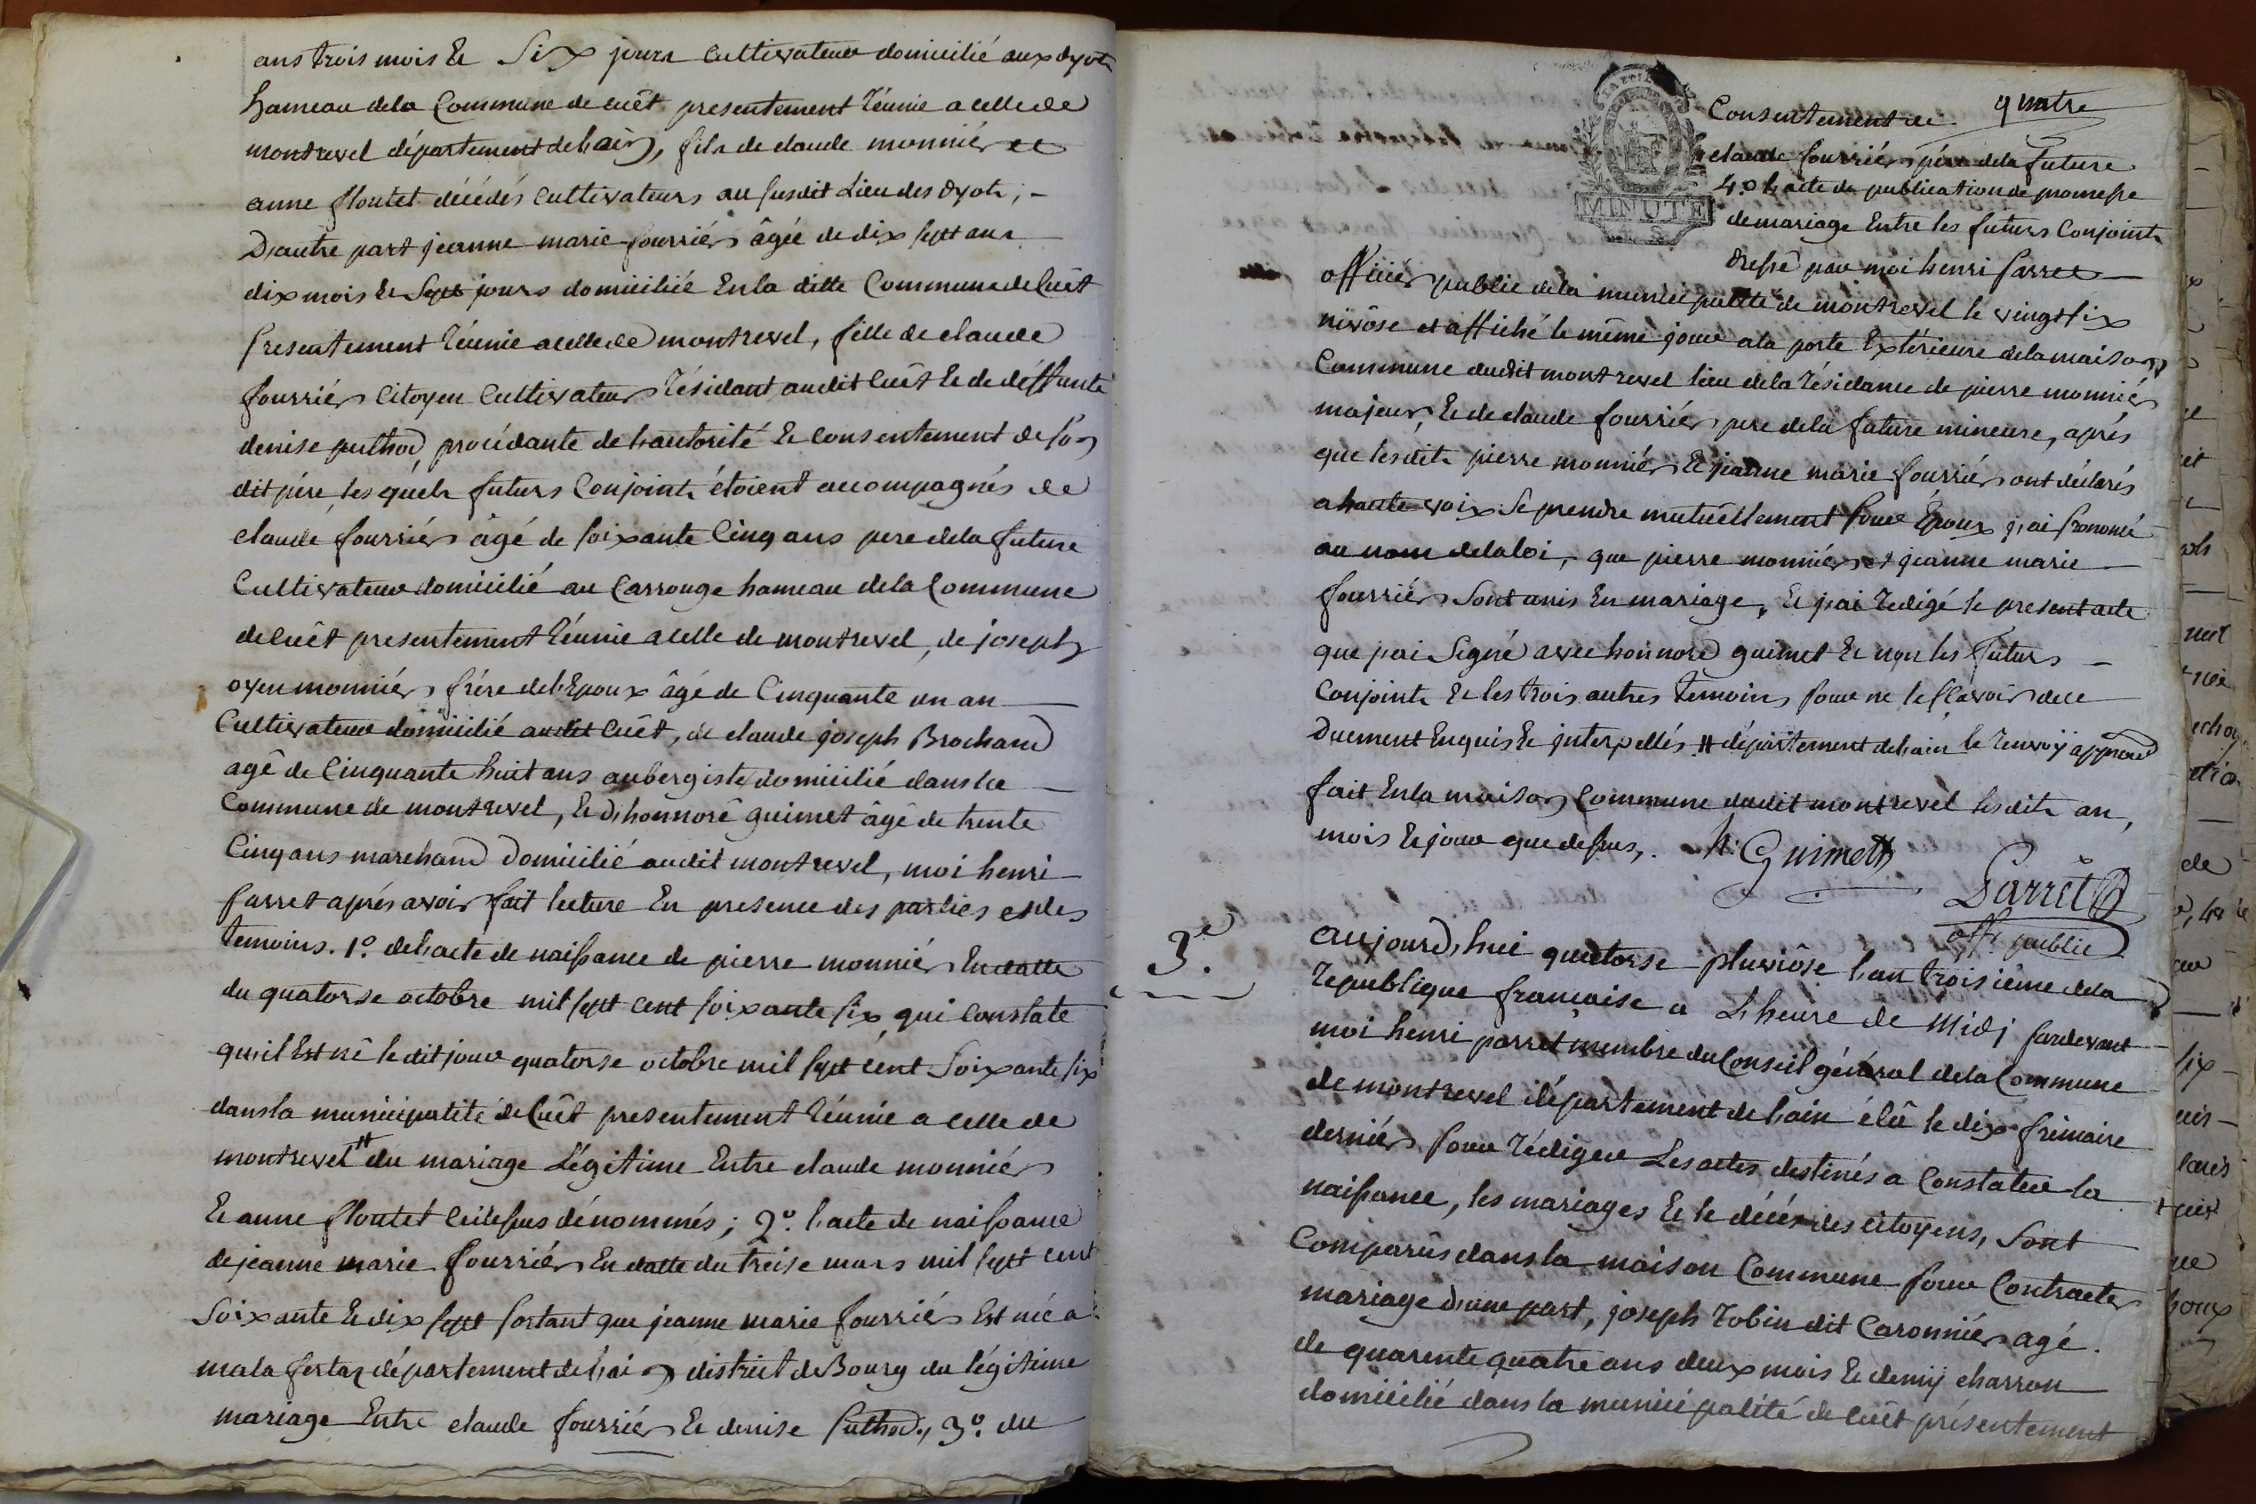 ans trois mois et Six jours Cultivateur domicilié aux dyots
hameau de la Commune de cuêt presentement réunie a celle de
montrevel département de l'ain, fils de claude monniér et
anne floutet décédés Cultivateurs au susdit Lieu des dyots ; -
D'autre part jeanne marie fourriér âgée de dix sept ans
dix mois et Sept jours domiciliée En la ditte Commune de Cuêt
presentement réunie a celle de montrevel, fille de claude
fourriér Citoyen Cultivateur résidant audit Cuêt et de déffunte
denise puthod procédante de l'autorité et consentement de son
dit pére, les quéls futurs Conjoints étoient accompagnés de
claude fourriér âgé de soixante Cinq ans pere de la future
Cultivateur domicilié au Carrouge hameau de la Commune
de Cuêt presentement réunie a celle de montrevel, de joseph
oyen monniér frére de l'Epoux âgé de Cinquante un an
Cultivateur domicilié audit Cuêt, de claude joseph Brochand
agé de Cinquante huit ans aubergiste domicilié dans la
Commune de montrevel, Et d'honnoré guimet âgé de trente
Cinq ans marchand Domicilié audit montrevel, moi henri
parret aprés avoir fait lecture En presence des parties et des
temoins. 1.º de l'acte de naissance de pierre monniér En datte
du quatorse octobre mil sept cent soixante six qui Constate
qu'il Est né le dit jour quatorse octobre mil sept cent Soixante six
dans la municipalité de Cuêt presentement réunie a celle de
montrevel # du mariage Légitime Entre claude monniér
Et anne floutet Cidessus dénommés ; 2.º l'acte de naissance
de jeanne marie fourriér En datte du treise mars mil sept cent
Soixante Et dix sept portant que jeanne marie fourriér Est née a
malafertaz département de l'ain district de Bourg du légitime
mariage Entre claude fourriér Et denise puthod, 3.º du
quatre
MINUTE
Consentement de
claude fourriér pére de la future
4.º l'acte de publication de promesse
de mariage Entre les futurs Conjoints
dressé par moi henri parret
officiér public de la municipalité de montrevel le vingt six
nivôse et affiché le même jour a la porte Extérieure de la maison
Commune dudit montrevel lieu de la résidance de pierre monniér
majeur, Et de claude fourriér pere de la future mineure, aprés
que lesdits pierre monniér Et jeanne marie fourriér ont déclarés
a haute voix Se prendre mutuêllement pour Époux j'ai prononcé
au nom de la loi, que pierre monniér et jeanne marie
fourriér Sont unis En mariage, Et j'ai redigé le present acte
que j'ai Signé avec honnoré guimet Et non les futurs
Conjoints Et les trois autres temoins pour ne le sçavoir de ce
Duement Enquis Et jnterpellés # département de l'ain le renvoÿ approuvé
fait En la maison Commune dudit montrevel lesdits an,
mois Et jour que dessus,. h. Guimet
Parret
offr. public
3.e
aujourd'hui quatorse pluviôse l'an troisiéme de la
republique française a L'heure de Midj pardevant
moi henri parret membre du Conseil général de la Commune
de montrevel département de l'ain élû le dix frimaire
derniér pour rédiger Les actes destinés a Constater la
naissance, les mariages Et le décés des citoyens, Sont
Comparûs dans la maison Commune pour Contracter
mariage d'une part, joseph robin dit Caronniér agé
de quarente quatre ans deux mois Et demij charron
domicilié dans la municipalité de Cuêt présentement